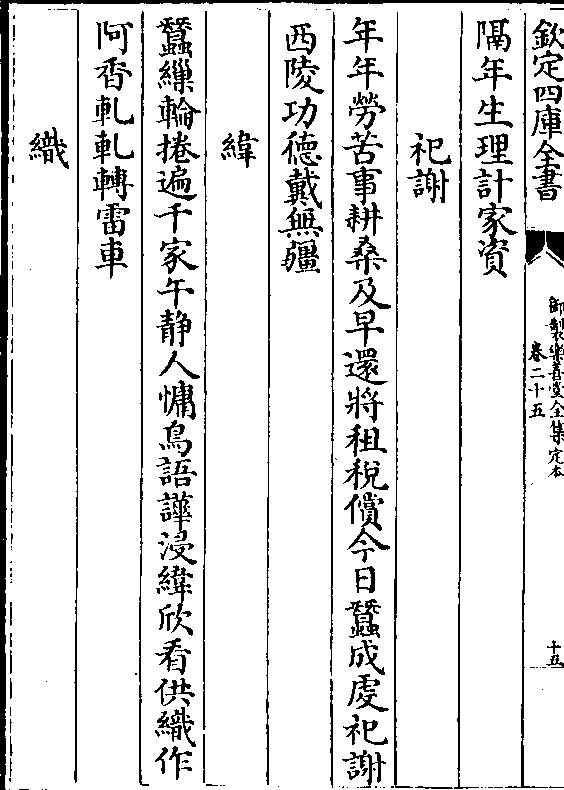 欽定四庫全書
御製樂善堂全集定本
卷二十五
十五
隔年生理計家資
祀謝
年年勞苦事耕桑及早還將租稅償今日蠶成虔祀謝
西陵功德戴無疆
緯
蠶繅輪捲遍千家午靜人慵鳥語譁浸緯欣看供織作
阿香軋軋轉雷車
織